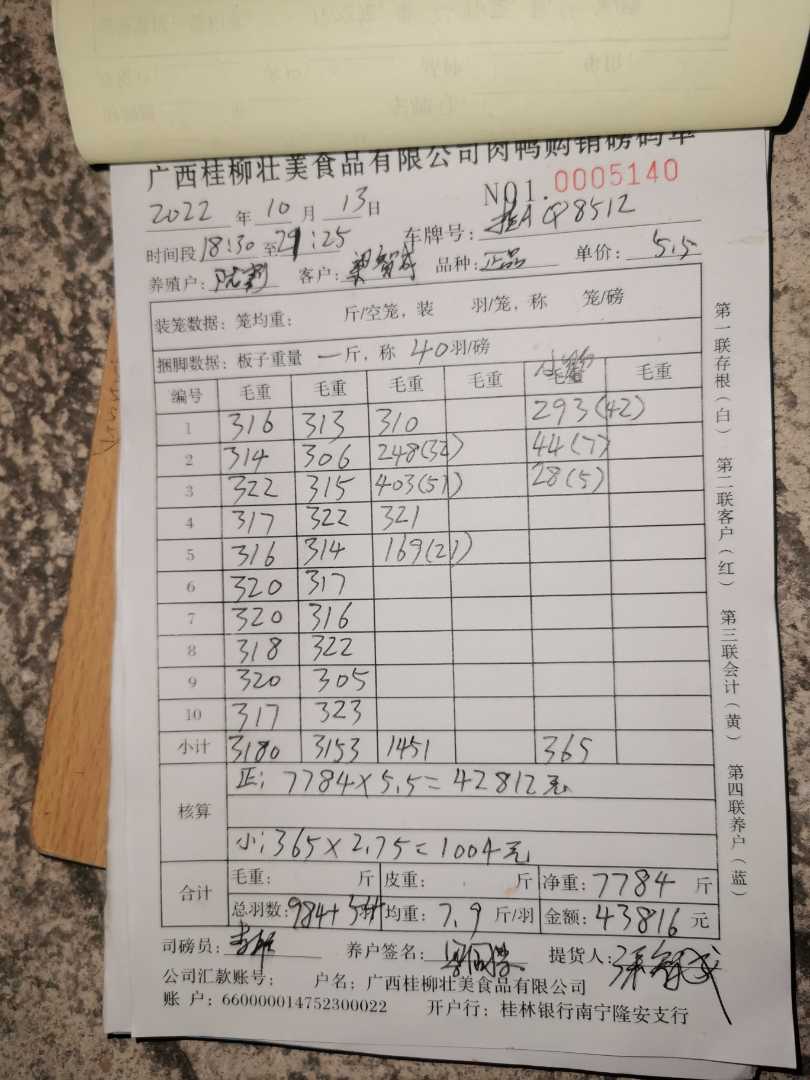 广西桂柳壮美食品有限公司肉鸭购销磅码单
NO1.0005140
2022 年 10 月 13 日
时间段 18:30 至 21:25 车牌号: 桂A Q8512
养殖户: 客户: 品种: 正品 单价: 5.5
装笼数据: 笼均重: 斤/空笼, 装 羽/笼, 称 笼/磅
捆脚数据: 板子重量 一斤, 称 40羽/磅
编号 毛重 毛重 毛重 毛重 毛重 毛重
1 316 313 310 293(42)
2 314 306 248(32) 44(7)
3 322 315 403(51) 28(5)
4 317 322 321
5 316 314 169(21)
6 320 317
7 320 316
8 318 322
9 320 305
10 317 323
小计 3180 3153 1451 365
核算 正: 7784×5.5=42812元
小: 365×2.75=1004元
合计 毛重: 斤 皮重: 斤 净重: 7784 斤
总羽数: 984+ 均重: 7.9 斤/羽 金额: 43816 元
司磅员: 养户签名: 提货人:
公司汇款账号: 户名: 广西桂柳壮美食品有限公司
账 户: 660000014752300022 开户行: 桂林银行南宁隆安支行
第一联存根(白) 第二联客户(红) 第三联会计(黄) 第四联养户(蓝)